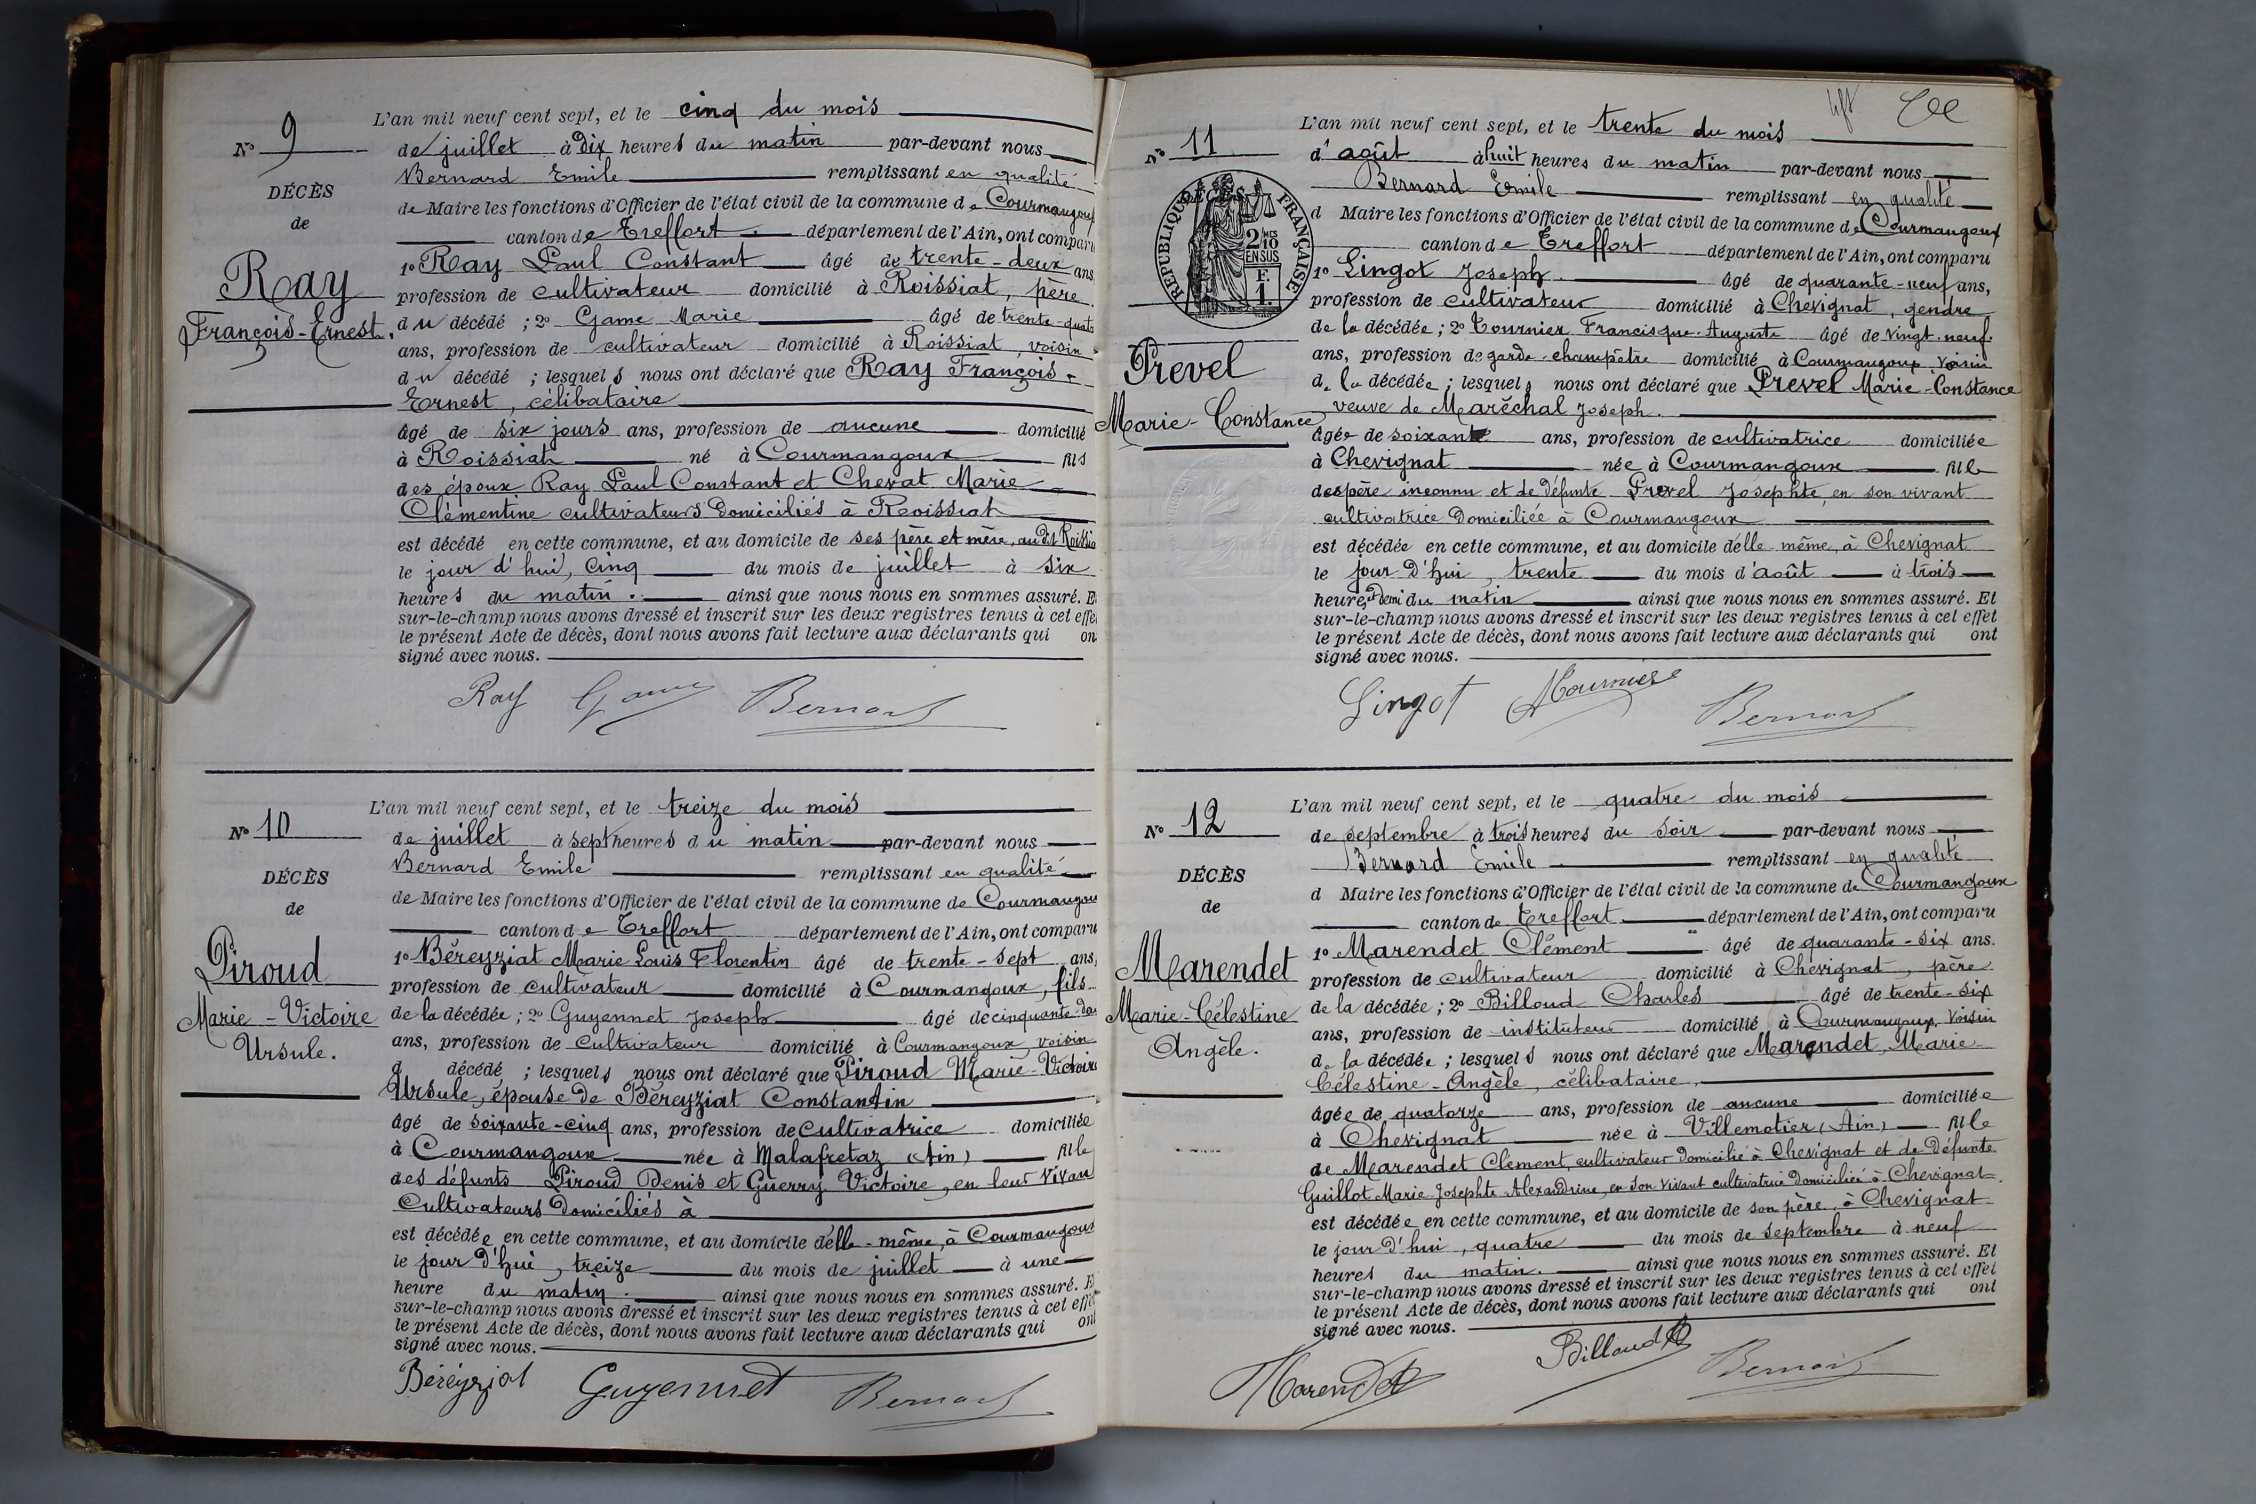 N° 9
DÉCÈS
de
Ray
François-Ernest.
L'an mil neuf cent sept, et le cinq du mois
de juillet à dix heures du matin par-devant nous
Bernard Emile remplissant en qualité
de Maire les fonctions d'Officier de l'état civil de la commune de Courmangoux
canton de Treffort département de l'Ain, ont comparu
1° Ray Paul Constant âgé de trente-deux ans
profession de cultivateur domicilié à Roissiat, père
du décédé ; 2° Game Marie âgé de trente-quat
ans, profession de cultivateur domicilié à Roissiat, voisin
du décédé ; lesquels nous ont déclaré que Ray François-
Ernest, célibataire
âgé de six jours ans, profession de aucune domicilié
à Roissiat né à Courmangoux fils
des époux Ray Paul Constant et Chevat Marie
Clémentine cultivateurs domiciliés à Roissiat
est décédé en cette commune, et au domicile de ses père et mère, au dit Roissia
le jour d'hui, cinq du mois de juillet à six
heures du matin. ainsi que nous nous en sommes assuré. E
sur-le-champ nous avons dressé et inscrit sur les deux registres tenus à cet effe
le présent Acte de décès, dont nous avons fait lecture aux déclarants qui on
signé avec nous.
Ray Game Bernard
N° 10
DÉCÈS
de
Piroud
Marie-Victoire
Ursule.
L'an mil neuf cent sept, et le treize du mois
de juillet à sept heures du matin par-devant nous
Bernard Emile remplissant en qualité
de Maire les fonctions d'Officier de l'état civil de la commune de Courmangou
canton de Treffort département de l'Ain, ont comparu
1° Béreyziat Marie Louis Florentin âgé de trente-sept ans,
profession de cultivateur domicilié à Courmangoux, fils
de la décédée ; 2° Guyennet Joseph âgé de cinquante-
ans, profession de cultivateur domicilié à Courmangoux, voisin
d décédé ; lesquels nous ont déclaré que Piroud Marie-Victoire
Ursule, épouse de Béreyziat Constantin
âgé de soixante-cinq ans, profession de cultivatrice domiciliée
à Courmangoux née à Malafretaz (Ain) fille
des défunts Piroud Denis et Guerry Victoire, en leur vivan
cultivateurs domiciliés à
est décédée en cette commune, et au domicile d'elle-même, à Courmangoux
le jour d'hui, treize du mois de juillet à une
heure du matin. ainsi que nous nous en sommes assuré. E
sur-le-champ nous avons dressé et inscrit sur les deux registres tenus à cet effe
le présent Acte de décès, dont nous avons fait lecture aux déclarants qui ont
signé avec nous.
Béréyziat Guyennet Bernard
N° 11
RÉPUBLIQUE FRANÇAISE
2 MES
10
EN SUS
F.
1.
Prevel
Marie-Constance
L'an mil neuf cent sept, et le trente du mois
d'août à huit heures du matin par-devant nous
Bernard Emile remplissant en qualité
d Maire les fonctions d'Officier de l'état civil de la commune de Courmangoux
canton de Treffort département de l'Ain, ont comparu
1° Lingot Joseph âgé de quarante-neuf ans,
profession de cultivateur domicilié à Chevignat, gendre
de la décédée ; 2° Tournier Francisque-Auguste âgé de vingt-neuf
ans, profession de garde-champêtre domicilié à Courmangoux, voisin
de la décédée ; lesquels nous ont déclaré que Prevel Marie-Constance
veuve de Maréchal Joseph.
âgée de soixante ans, profession de cultivatrice domiciliée
à Chevignat née à Courmangoux fille
des père inconnu et de défunte Prevel Josephte, en son vivant
cultivatrice domiciliée à Courmangoux
est décédée en cette commune, et au domicile d'elle-même, à Chevignat
le jour d'hui, trente du mois d'août à trois
heures demi du matin ainsi que nous nous en sommes assuré. Et
sur-le-champ nous avons dressé et inscrit sur les deux registres tenus à cet effet
le présent Acte de décès, dont nous avons fait lecture aux déclarants qui ont
signé avec nous.
Lingot Tournier Bernard
N° 12
DÉCÈS
de
Marendet
Marie-Célestine
Angèle.
L'an mil neuf cent sept, et le quatre du mois
de septembre à trois heures du soir par-devant nous
Bernard Emile remplissant en qualité
d Maire les fonctions d'Officier de l'état civil de la commune de Courmangoux
canton de Treffort département de l'Ain, ont comparu
1° Marendet Clément âgé de quarante-six ans.
profession de cultivateur domicilié à Chevignat, père
de la décédée ; 2° Billoud Charles âgé de trente-six
ans, profession de instituteur domicilié à Courmangoux, voisin
de la décédée ; lesquels nous ont déclaré que Marendet, Marie
Célestine-Angèle, célibataire,
âgée de quatorze ans, profession de aucune domiciliée
à Chevignat née à Villemotier (Ain) fille
de Marendet Clément, cultivateur domicilié à Chevignat et de défunte
Guillot Marie Josephte Alexandrine, en son vivant cultivatrice domiciliée à Chevignat
est décédée en cette commune, et au domicile de son père, à Chevignat
le jour d'hui, quatre du mois de septembre à neuf
heures du matin. ainsi que nous nous en sommes assuré. Et
sur-le-champ nous avons dressé et inscrit sur les deux registres tenus à cet effet
le présent Acte de décès, dont nous avons fait lecture aux déclarants qui ont
signé avec nous.
Marendet Billoud Bernard